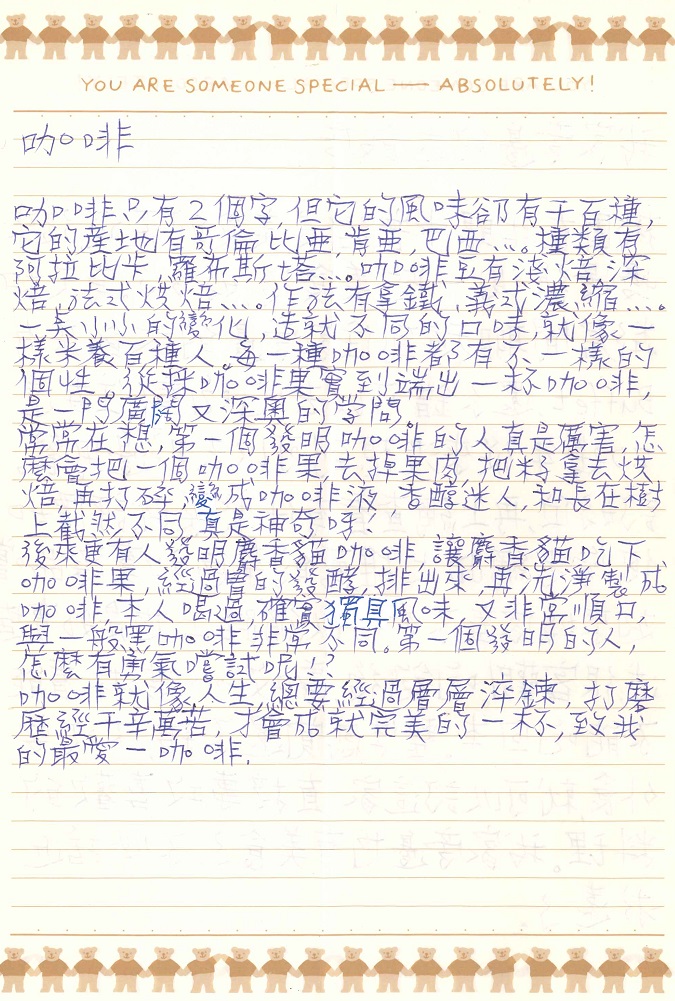 YOU ARE SOMEONE SPECIAL — ABSOLUTELY!
咖啡
咖啡只有2個字,但它的風味卻有千百種,
它的產地有哥倫比亞,肯亞,巴西…。種類有
阿拉比卡,羅布斯塔…。咖啡豆有淺焙,深
焙,法式烘焙…。作法有拿鐵,義式濃縮…。
一點小小的變化,造就不同的口味,就像一
樣米養百種人。每一種咖啡都有不一樣的
個性。從採咖啡果實到端出一杯咖啡,
是一門廣闊又深奧的學問。
常常在想,第一個發明咖啡的人真是厲害,怎
麼會把一個咖啡果,去掉果肉,把籽拿去烘
焙,再打碎,變成咖啡液,香醇迷人,和長在樹
上截然不同,真是神奇呀!
後來更有人發明麝香貓咖啡,讓麝香貓吃下
咖啡果,經過胃的發酵,排出來,再洗淨製成
咖啡,本人喝過,確實獨具風味,又非常順口,
與一般黑咖啡非常不同。第一個發明的人,
怎麼有勇氣嚐試呢!?
咖啡就像人生,總要經過層層淬鍊,打磨
歷經千辛萬苦,才會成就完美的一杯,致我
的最愛—咖啡.